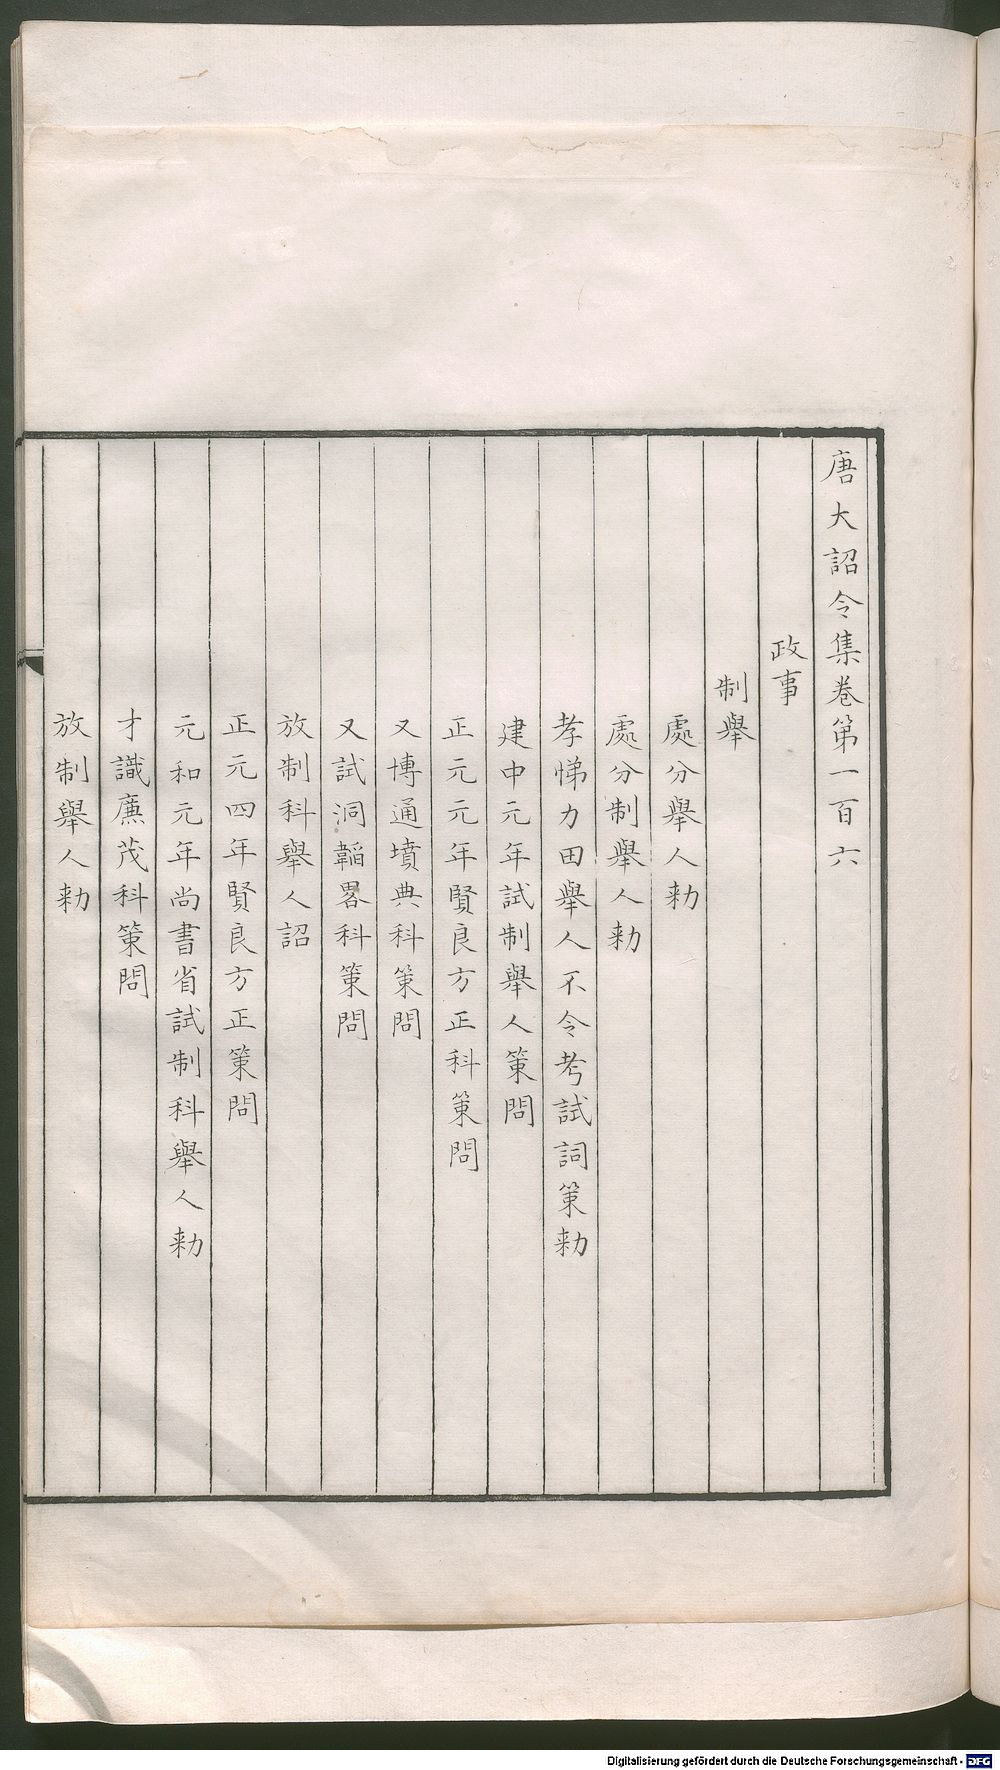 唐大詔令集卷第一百六
政事
制舉
處分舉人勑
處分制舉人勑
孝悌力田舉人不令考試詞策勑
建中元年試制舉人策問
正元元年賢良方正科策問
又博通墳典科策問
又試洞韜畧科策問
放制科舉人詔
正元四年賢良方正策問
元和元年尚書省試制科舉人勑
才識廉茂科策問
放制舉人勑
Digitalisierung gefördert durch die Deutsche Forschungsgemeinschaft - DFG